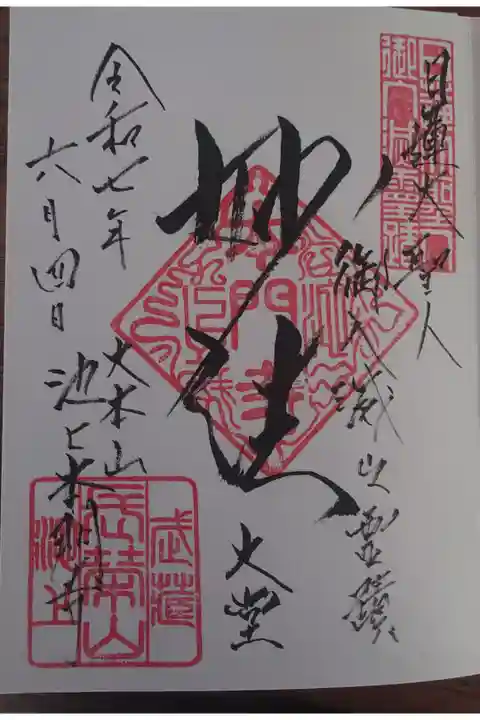 日蓮大聖人
御入滅之霊蹟
妙法
大堂
大本山
池上本門寺
令和七年
六月四日
武蔵
長栄山
池上